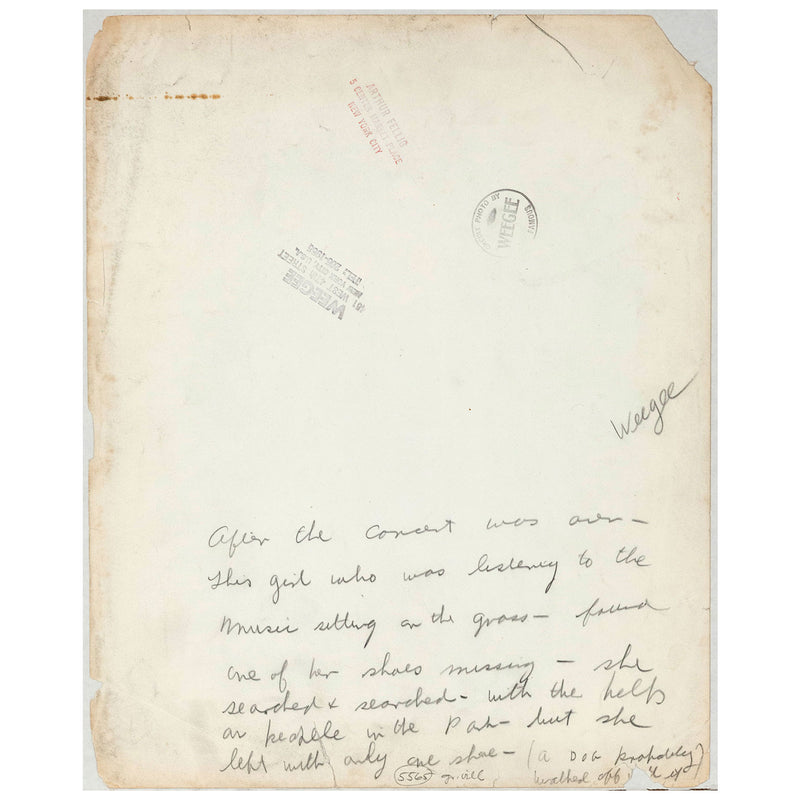 ARTHUR FELLIG
5 CENTER MARKET PLACE
NEW YORK CITY
CREDIT PHOTO BY
WEEGEE
FAMOUS
WEEGEE
451 WEST 47th STREET
NEW YORK CITY, U.S.A.
Weegee
After the concert was over –
this girl who was listening to the
music sitting on the grass – found
one of her shoes missing – she
searched & searched – with the help
or people in the Park – but she
left with only one shoe – (a dog probably
walked off
5565 gr. vill,